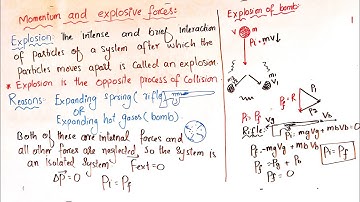 Momentum and explosive forces:
Explosion: The intense and brief interaction
of particles of a system after which the
Particles moves apart is called an explosion.
* Explosion is the opposite process of Collision.
Reasons: Expanding spring (rifle)
OR
Expanding hot gases (bomb)
Both of these are internal forces and
all other forces are neglected, so the system is
an isolated system. Fext=0
ΔP=0 Pi = Pf
Explosion of bomb:
m
V Pi=mv↓
m m
Pf=R Pi
P1
P2
Pi = Pf
Rifle: Vg Vb
Pi=mgVg+mbVb=0
Pf=-mgVg+mbVb Pi=Pf
Pf=Pg+Pb
Pf=0